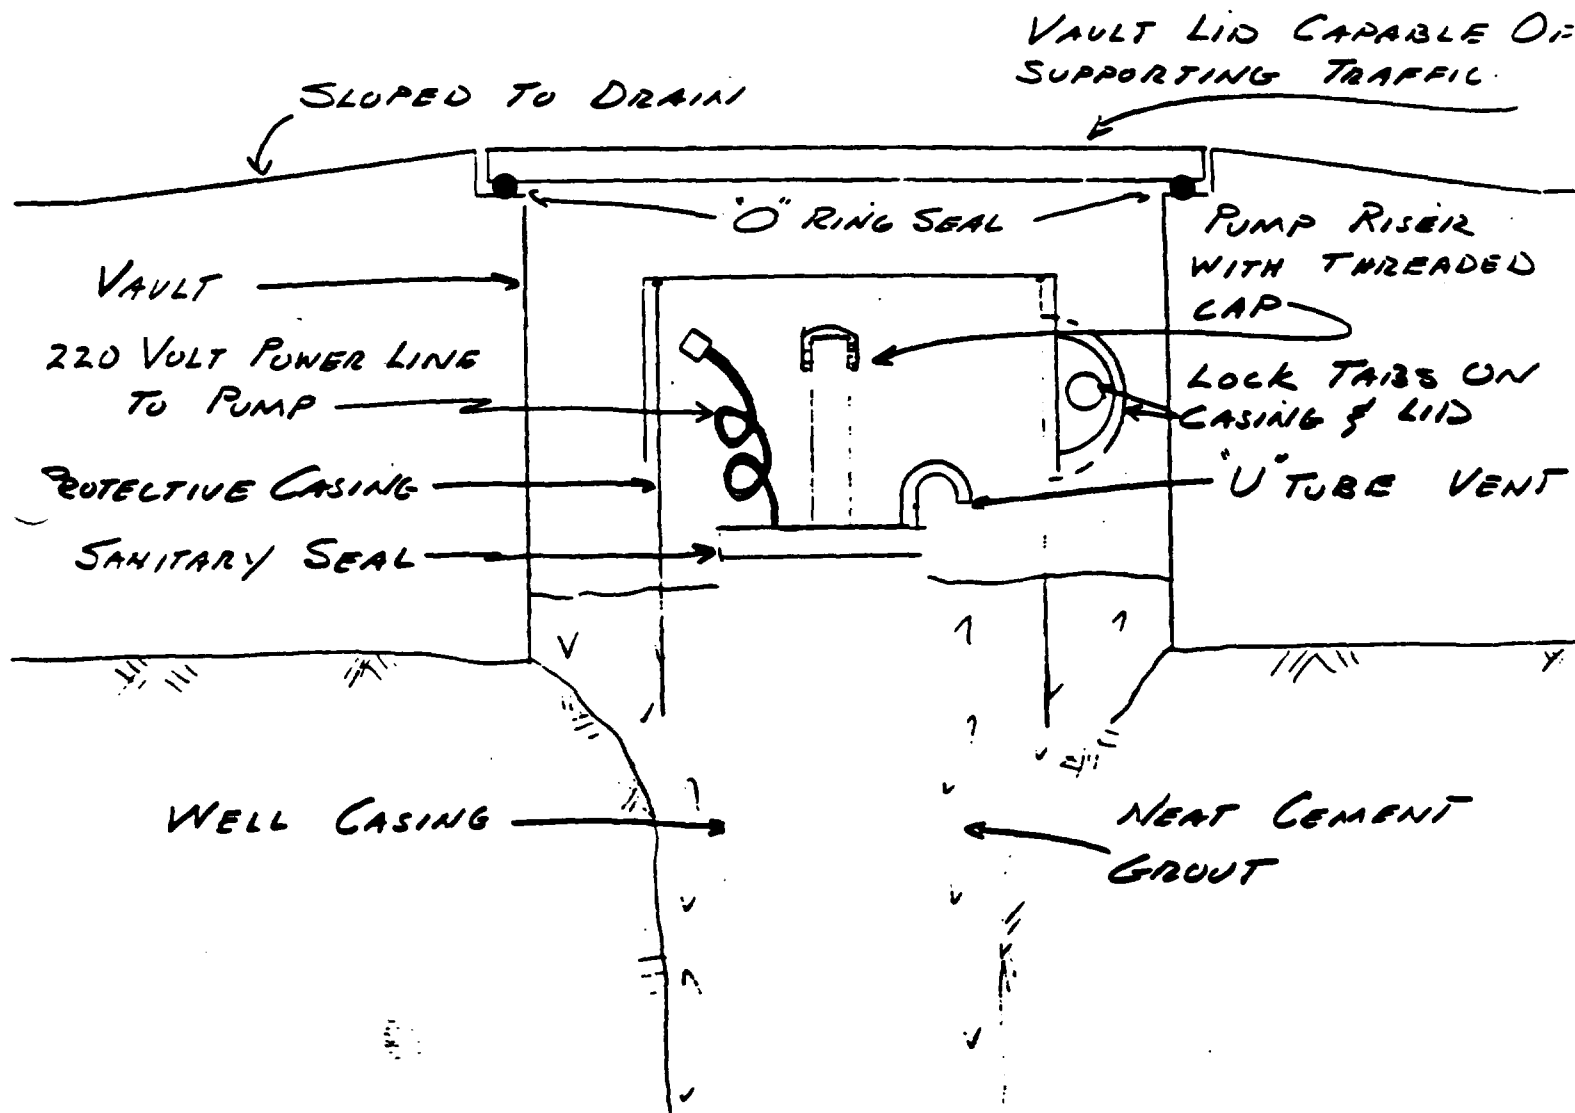 VAULT LID CAPABLE OF
SUPPORTING TRAFFIC
SLOPED TO DRAIN
"O" RING SEAL
PUMP RISER
WITH THREADED
CAP
VAULT
220 VOLT POWER LINE
TO PUMP
LOCK TABS ON
CASING & LID
PROTECTIVE CASING
"U" TUBE VENT
SANITARY SEAL
WELL CASING
NEAT CEMENT
GROUT